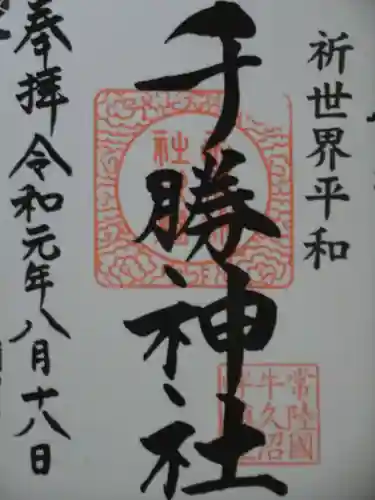 祈世界平和
千勝神社
奉拝 令和元年八月十八日
常陸國
牛久沼